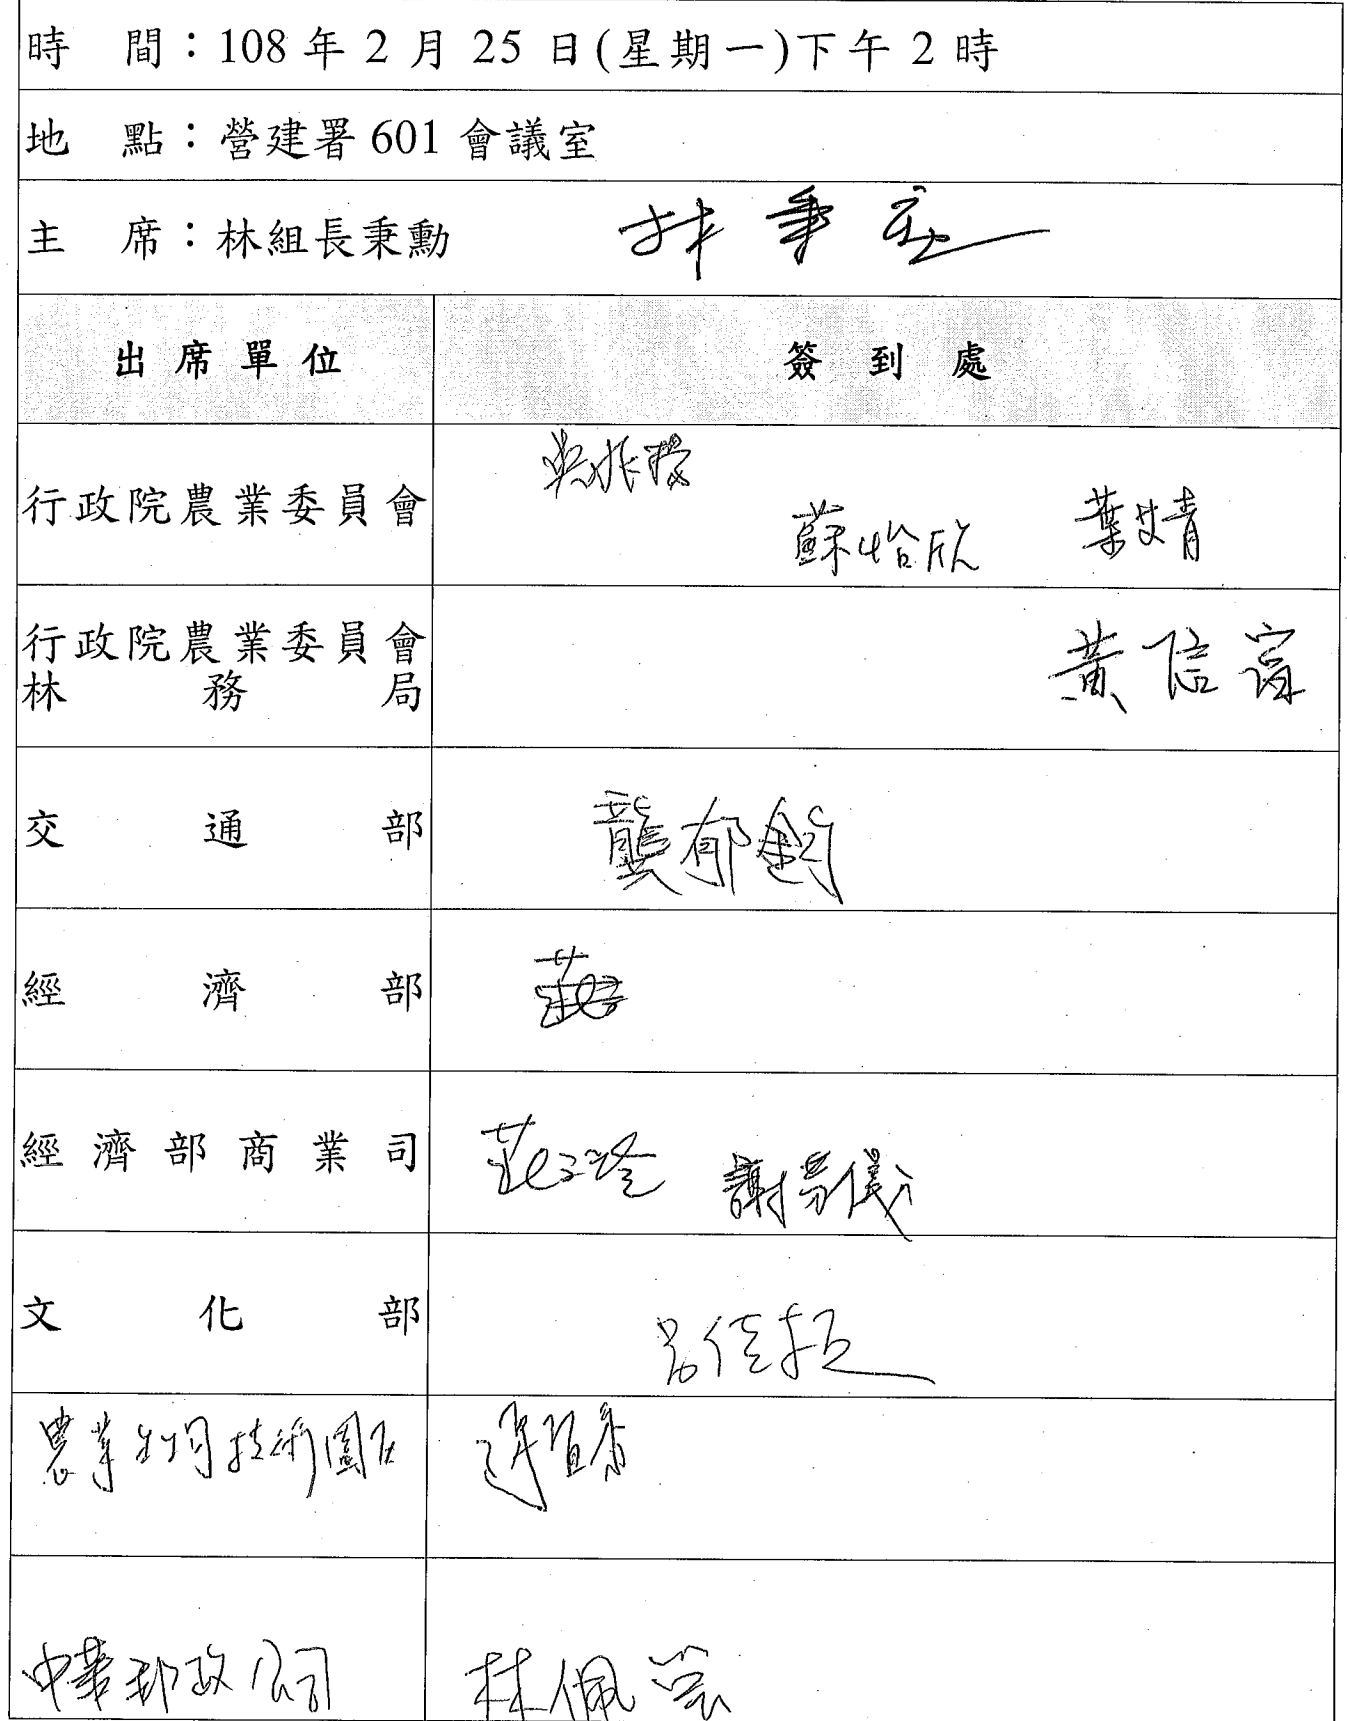 時　間：108 年 2 月 25 日(星期一)下午 2 時
地　點：營建署 601 會議室
主　席：林組長秉勳 林秉勳
出席單位 簽到處
行政院農業委員會 蘇怡欣 葉文青
行政院農業委員會
林務局 黃信富
交通部 龔郁鈞
經濟部
經濟部商業司 謝芳儀
文化部 呂佳穎
農業生物技術園區
中華郵政公司 林佩瑩